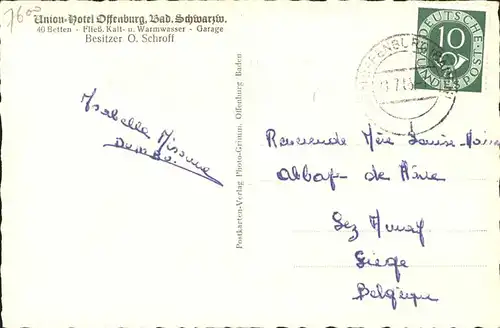 7600
Union-Hotel Offenburg, Bad. Schwarzw.
40 Betten - Fließ. Kalt- u. Warmwasser - Garage
Besitzer O. Schroff
Isabelle
Postkarten-Verlag Photo-Grimm, Offenburg Baden
DEUTSCHE BUNDESPOST
10
OFFENBURG
Révérende Mère Louise-Marie
Abbaye de
Liège
Belgique